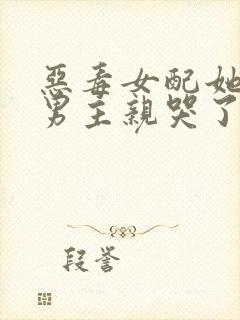 恶毒女配她
男主亲哭了
段誉